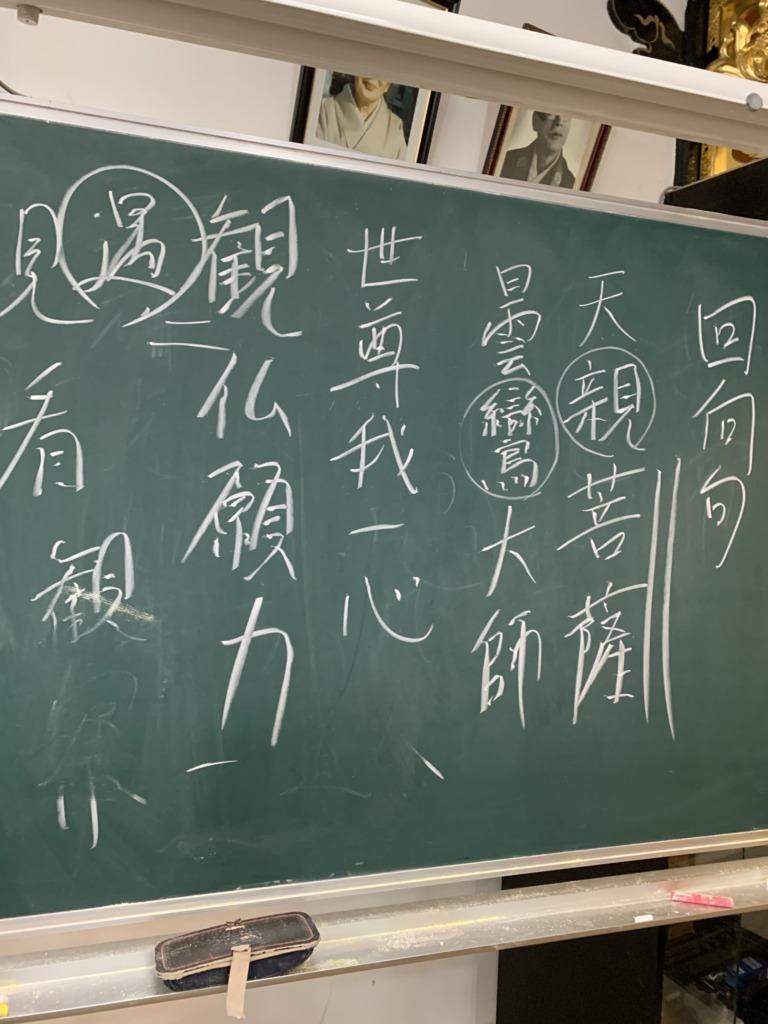 回向句
天親菩薩
曇鸞大師
世尊我一心
観仏願力
遇二
見看観